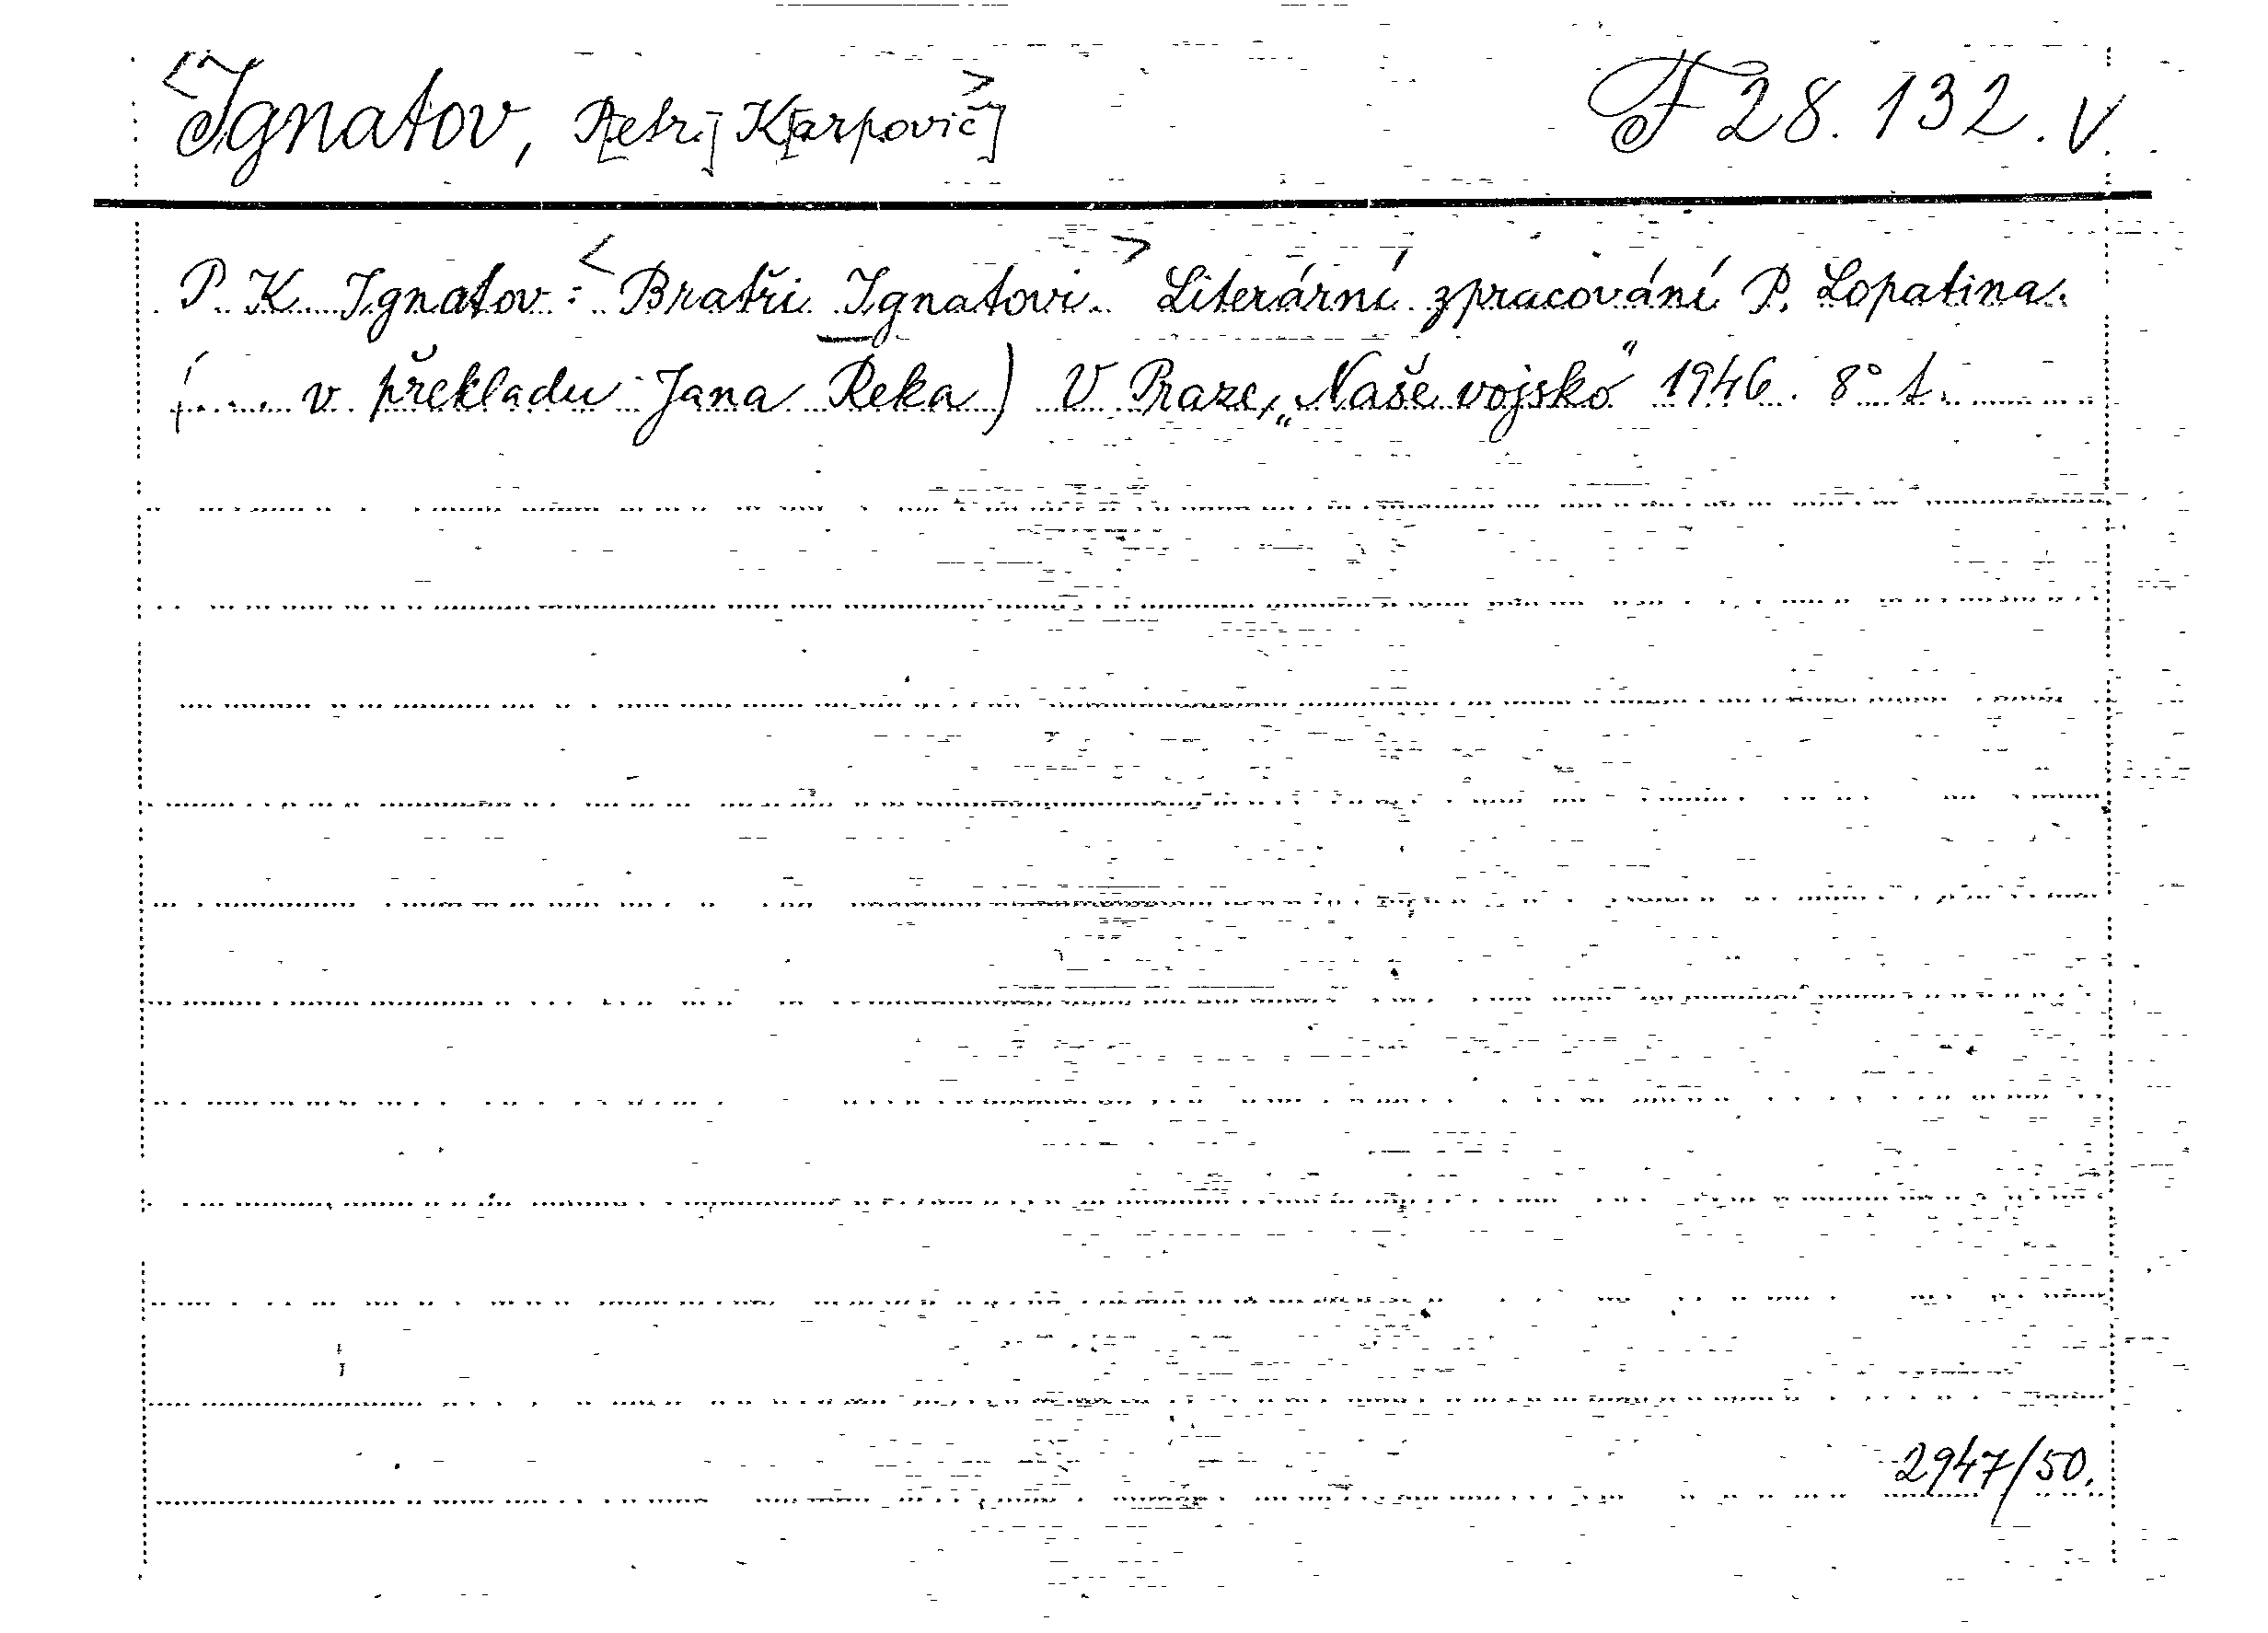 <Ignatov, P[etr] K[arpovič]> F 28.132.V.
P. K. Ignatov: <Bratři Ignatovi.> Literární zpracování P. Lopatina.
(... v překladu Jana Řeka) V Praze, „Naše vojsko" 1946. 8° t.
2947/50.